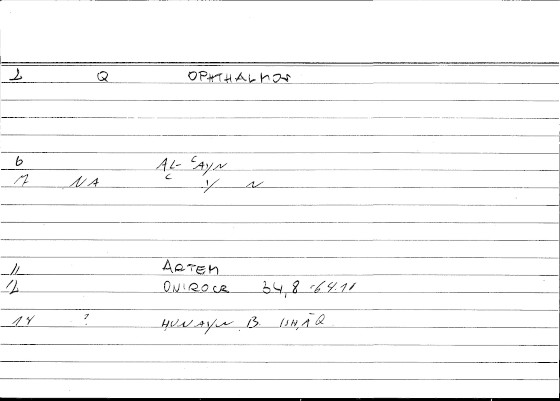 1 Q OPHTHALMOS
6 AL-ʿAYN
7 NA ʿ Y N
11 ARTEM
12 ONIROCR 64,8 -64.11
14 ? HUNAYN B. ISḤĀQ